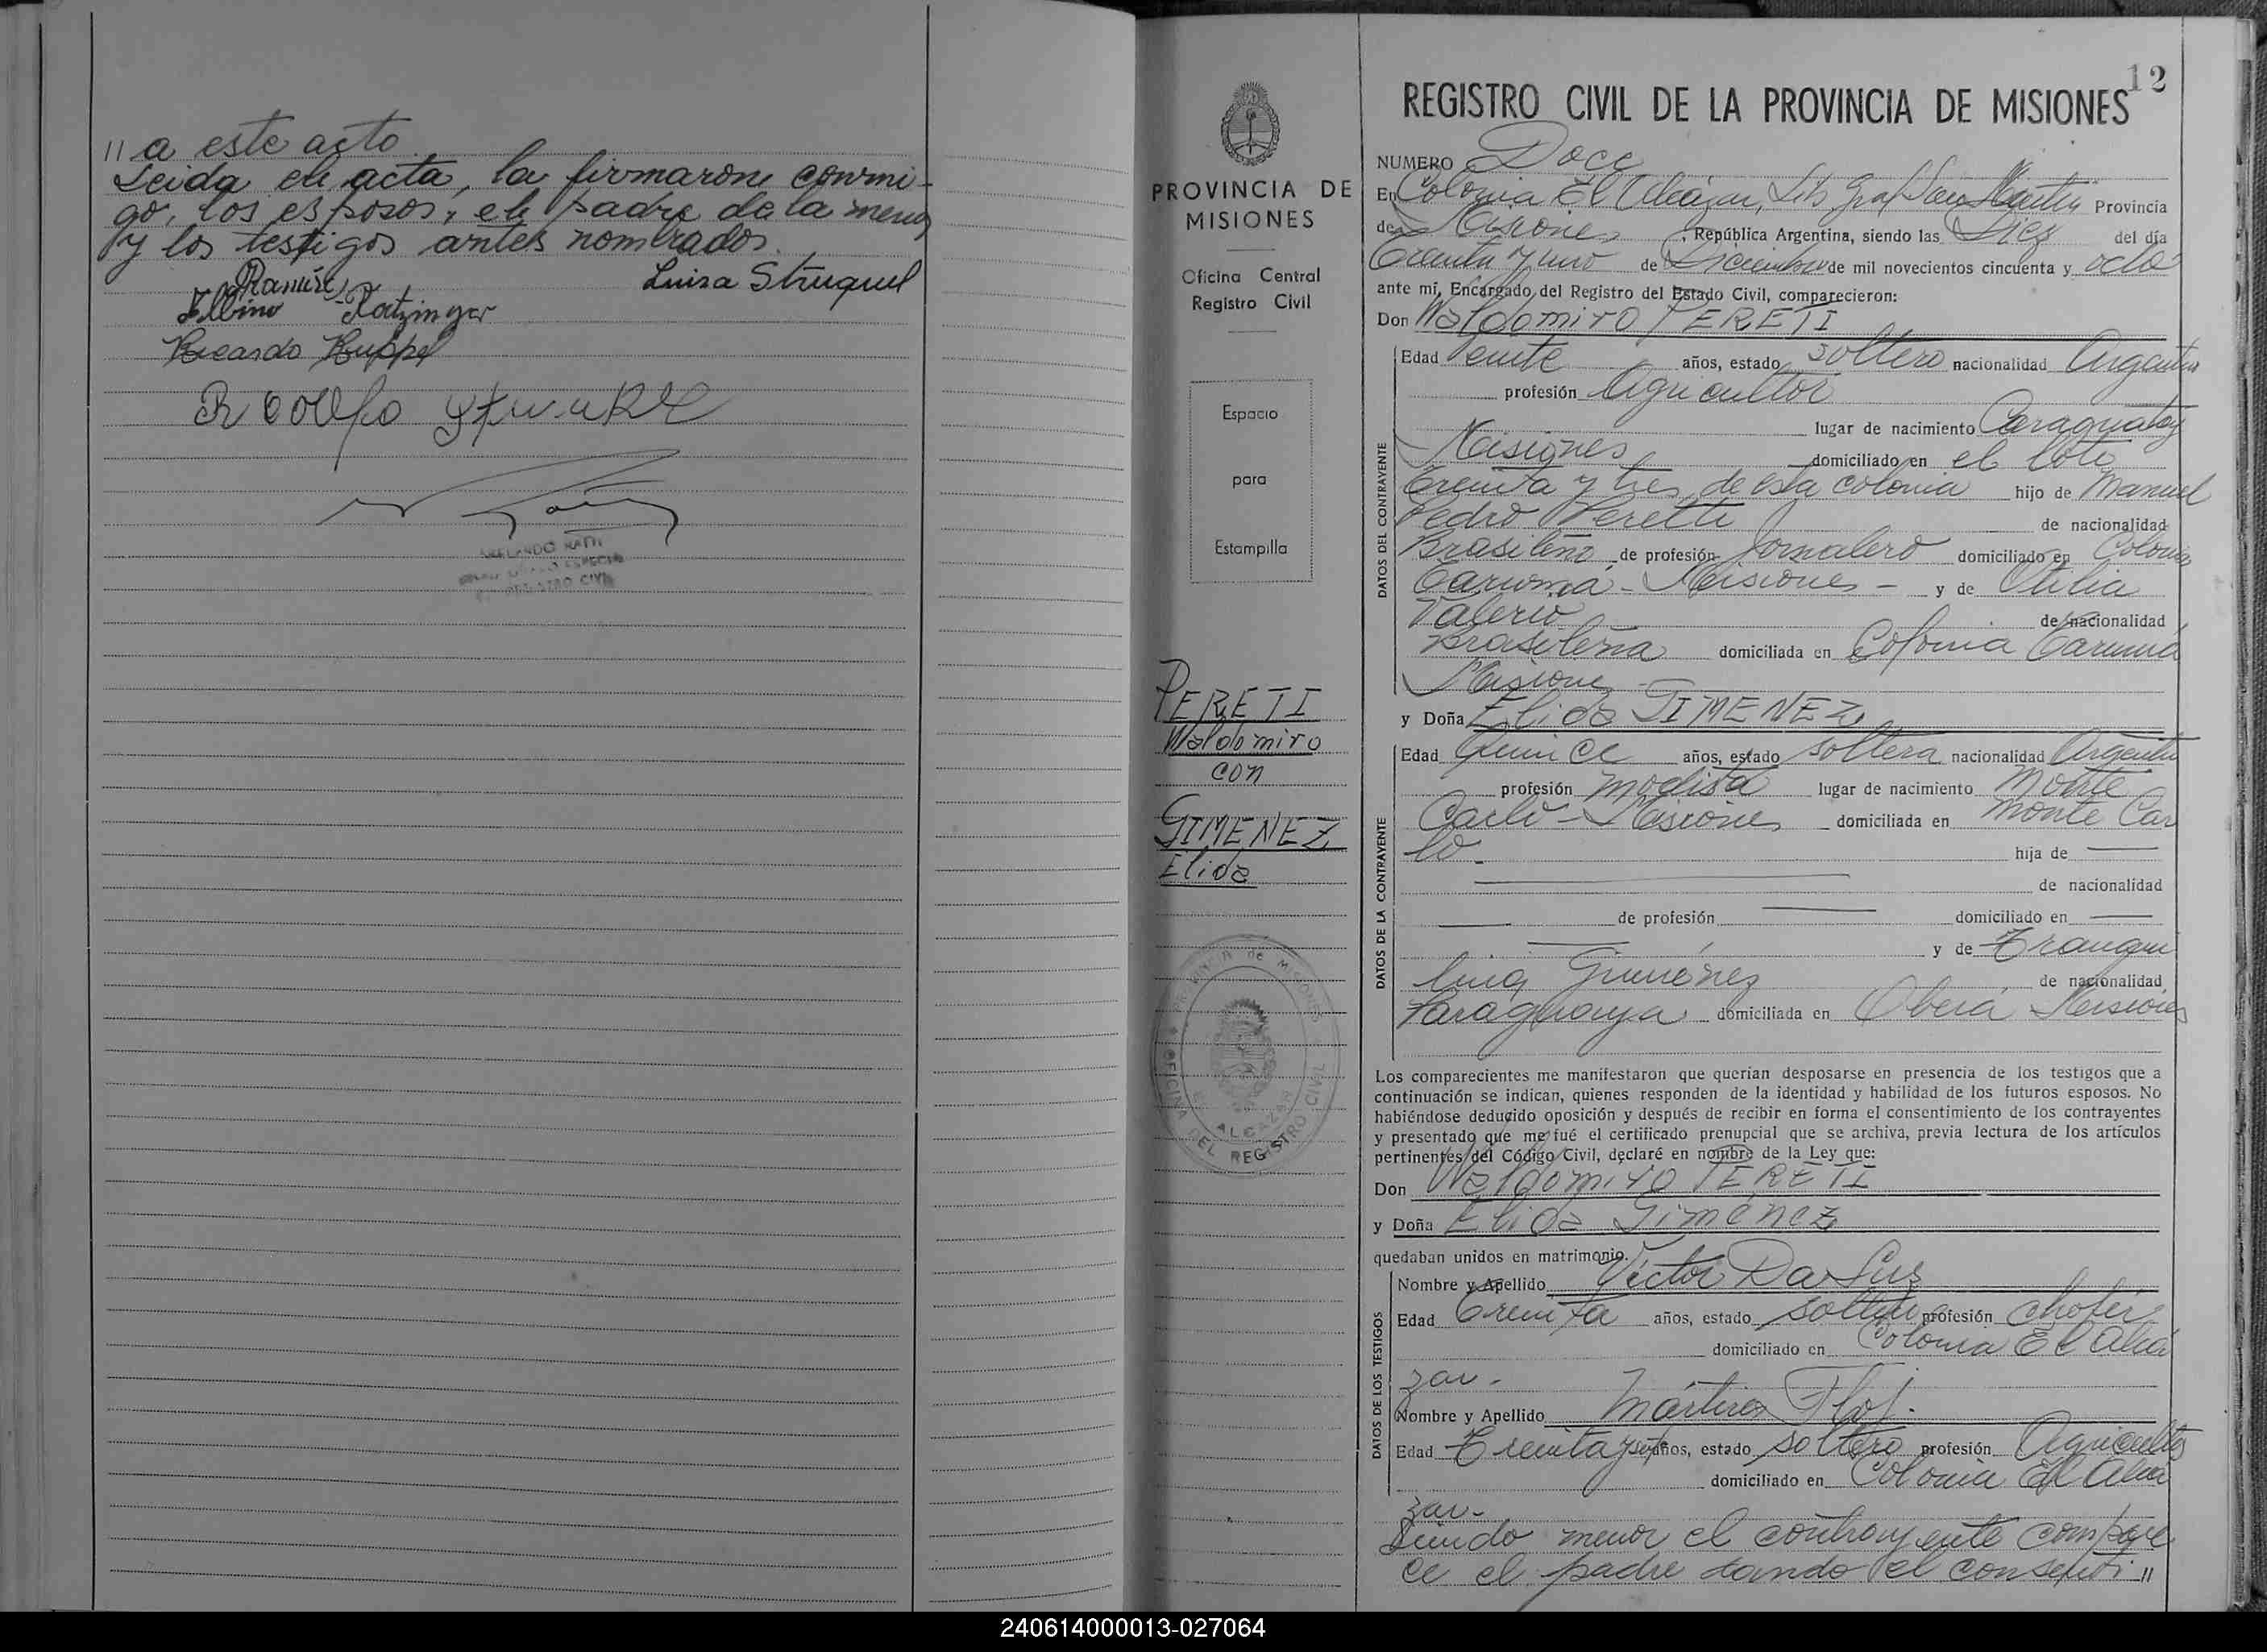 // a este acto
Leida el acta, la firmaron conmi-
go, los esposos, el padre de la menor
y los testigos antes nombrados.
Luisa Struquel
Albino Ratzinger
Ricardo Huppel
Rodolfo
REGISTRO CIVIL
PROVINCIA DE
MISIONES
Oficina Central
Registro Civil
Espacio
para
Estampilla
PERETI
Waldomiro
con
GIMENEZ
Elida
PROVINCIA de MISIONES
ALCAZAR
OFICINA DEL REGISTRO CIVIL
12
REGISTRO CIVIL DE LA PROVINCIA DE MISIONES
NUMERO Doce
En Colonia El Alcázar, Lib. Gral San Martin Provincia
de Misiones, República Argentina, siendo las Diez del día
Treinta y uno de Diciembre de mil novecientos cincuenta y ocho
ante mí, Encargado del Registro del Estado Civil, comparecieron:
Don Waldomiro PERETI
DATOS DEL CONTRAYENTE
Edad Veinte años, estado soltero nacionalidad Argentin
profesión Agricultor
lugar de nacimiento Caraguatay
Misiones domiciliado en el lote
Treinta y tres de esta colonia hijo de Manuel
Pedro Peretti de nacionalidad
Brasileño de profesión Jornalero domiciliado en Colonia
Caruma - Misiones - y de Otilia
Valerio de nacionalidad
Brasileña domiciliada en Colonia Caruma
Misiones
y Doña Elida GIMENEZ
DATOS DE LA CONTRAYENTE
Edad Quince años, estado soltera nacionalidad Argentin
profesión modista lugar de nacimiento Monte
Carlo - Misiones domiciliada en Monte Car
lo - hija de
de nacionalidad
de profesión domiciliado en
y de Tranqui
lina Giménez de nacionalidad
Paraguaya domiciliada en Oberá Misiones
Los comparecientes me manifestaron que querían desposarse en presencia de los testigos que a
continuación se indican, quienes responden de la identidad y habilidad de los futuros esposos. No
habiéndose deducido oposición y después de recibir en forma el consentimiento de los contrayentes
y presentado que me fué el certificado prenupcial que se archiva, previa lectura de los artículos
pertinentes del Código Civil, declaré en nombre de la Ley que:
Don Waldomiro PERETI
y Doña Elida Giménez
quedaban unidos en matrimonio.
DATOS DE LOS TESTIGOS
Nombre y Apellido Victor Da Luz
Edad Treinta años, estado soltero profesión chofer
domiciliado en Colonia El Alcá
zar -
Nombre y Apellido Mártires
Edad Treinta y años, estado soltero profesión Agricultor
domiciliado en Colonia El Alcá
zar -
Siendo menor el contrayente compare
ce el padre dando el consenti //
240614000013-027064